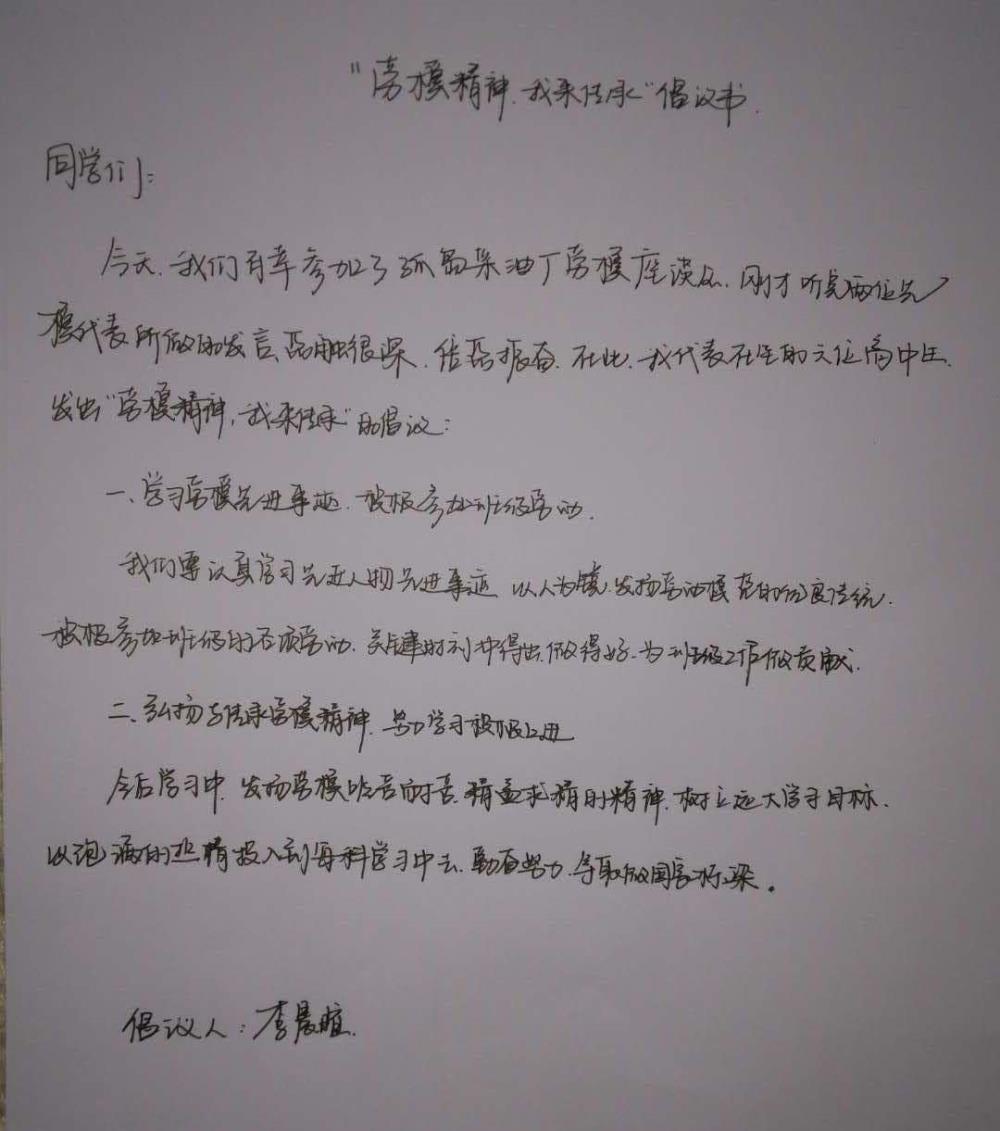 "劳模精神,我来传承"倡议书.
同学们:
今天,我们有幸参加了孤岛采油厂劳模座谈会,刚才听完两位先
模代表所做的发言,感触很深,倍感振奋.在此,我代表在坐的六位高中生,
发出"劳模精神,我来传承"的倡议:
一、学习劳模先进事迹,积极参加班级劳动.
我们要认真学习先进人物先进事迹,以人为镜,发扬劳动模范的优良传统.
积极参加班级的各项劳动,关键时刻冲得出,做得好,为班级工作做贡献.
二、弘扬与传承劳模精神,努力学习积极上进
今后学习中,发扬劳模吃苦耐苦,精益求精的精神,树立远大学习目标.
以饱满的热情投入到每科学习中去,勤奋努力,争取做国家栋梁。
倡议人:李晨